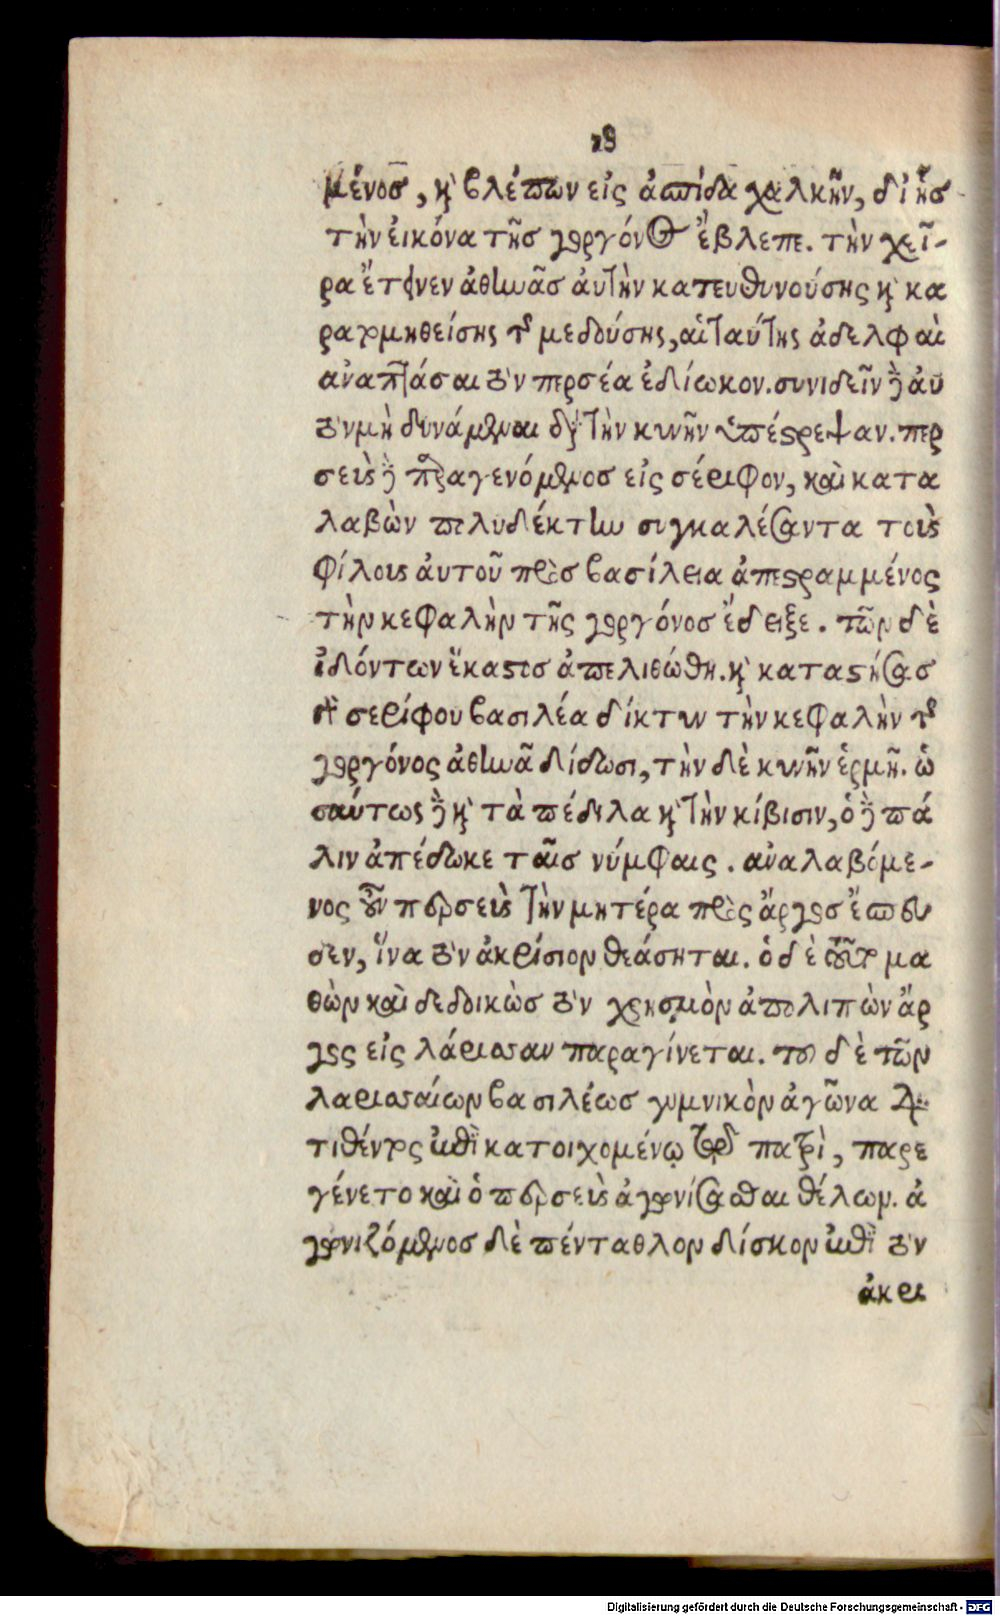 28
μένος, καὶ βλέπων εἰς ἀσπίδα χαλκῆν, δι' ἧς
τὴν εἰκόνα τῆς γοργόνος ἔβλεπε. τὴν χεῖ-
ρα ἔτεινεν ἀθηνᾶς αὐτὴν κατευθυνούσης καὶ κα
ρατμηθείσης τῆς μεδούσης, αἱ ταύτης ἀδελφαὶ
ἀναπτᾶσαι τὸν περσέα ἐδίωκον. συνιδεῖν δὲ αὐ
τὸν μὴ δυνάμεναι διὰ τὴν κυνῆν ὑπέστρεψαν. περ
σεὺς δὲ παραγενόμενος εἰς σέριφον, καὶ κατα
λαβὼν πολυδέκτην συγκαλέσαντα τοὺς
φίλους αὐτοῦ πρὸς βασίλεια ἀπεστραμμένος
τὴν κεφαλὴν τῆς γοργόνος ἔδειξε. τῶν δὲ
ἰδόντων ἕκαστος ἀπελιθώθη. καὶ καταστήσας
τῆς σερίφου βασιλέα δίκτυν τὴν κεφαλὴν τῆς
γοργόνος ἀθηνᾶ δίδωσι, τὴν δὲ κυνῆν ἑρμῆ. ὡ
σαύτως δὲ καὶ τὰ πέδιλα καὶ τὴν κίβισιν, ὁ δὲ πά
λιν ἀπέδωκε ταῖς νύμφαις. ἀναλαβόμε-
νος οὖν περσεὺς τὴν μητέρα πρὸς ἄργος ἔσπευ
δεν, ἵνα τὸν ἀκρίσιον θεάσηται. ὁ δὲ τοῦτο μα
θὼν καὶ δεδοικὼς τὸν χρησμὸν ἀπολιπὼν ἄρ
γος εἰς λάρισσαν παραγίνεται. τοῦ δὲ τῶν
λαρισσαίων βασιλέως γυμνικὸν ἀγῶνα δια
τιθέντος ἐπὶ κατοιχομένῳ τῷ πατρὶ, παρε
γένετο καὶ ὁ περσεὺς ἀγωνίσασθαι θέλων. ἀ
γωνιζόμενος δὲ πένταθλον δίσκον ἐπὶ τὸν
ἀκρι
Digitalisierung gefördert durch die Deutsche Forschungsgemeinschaft - DFG